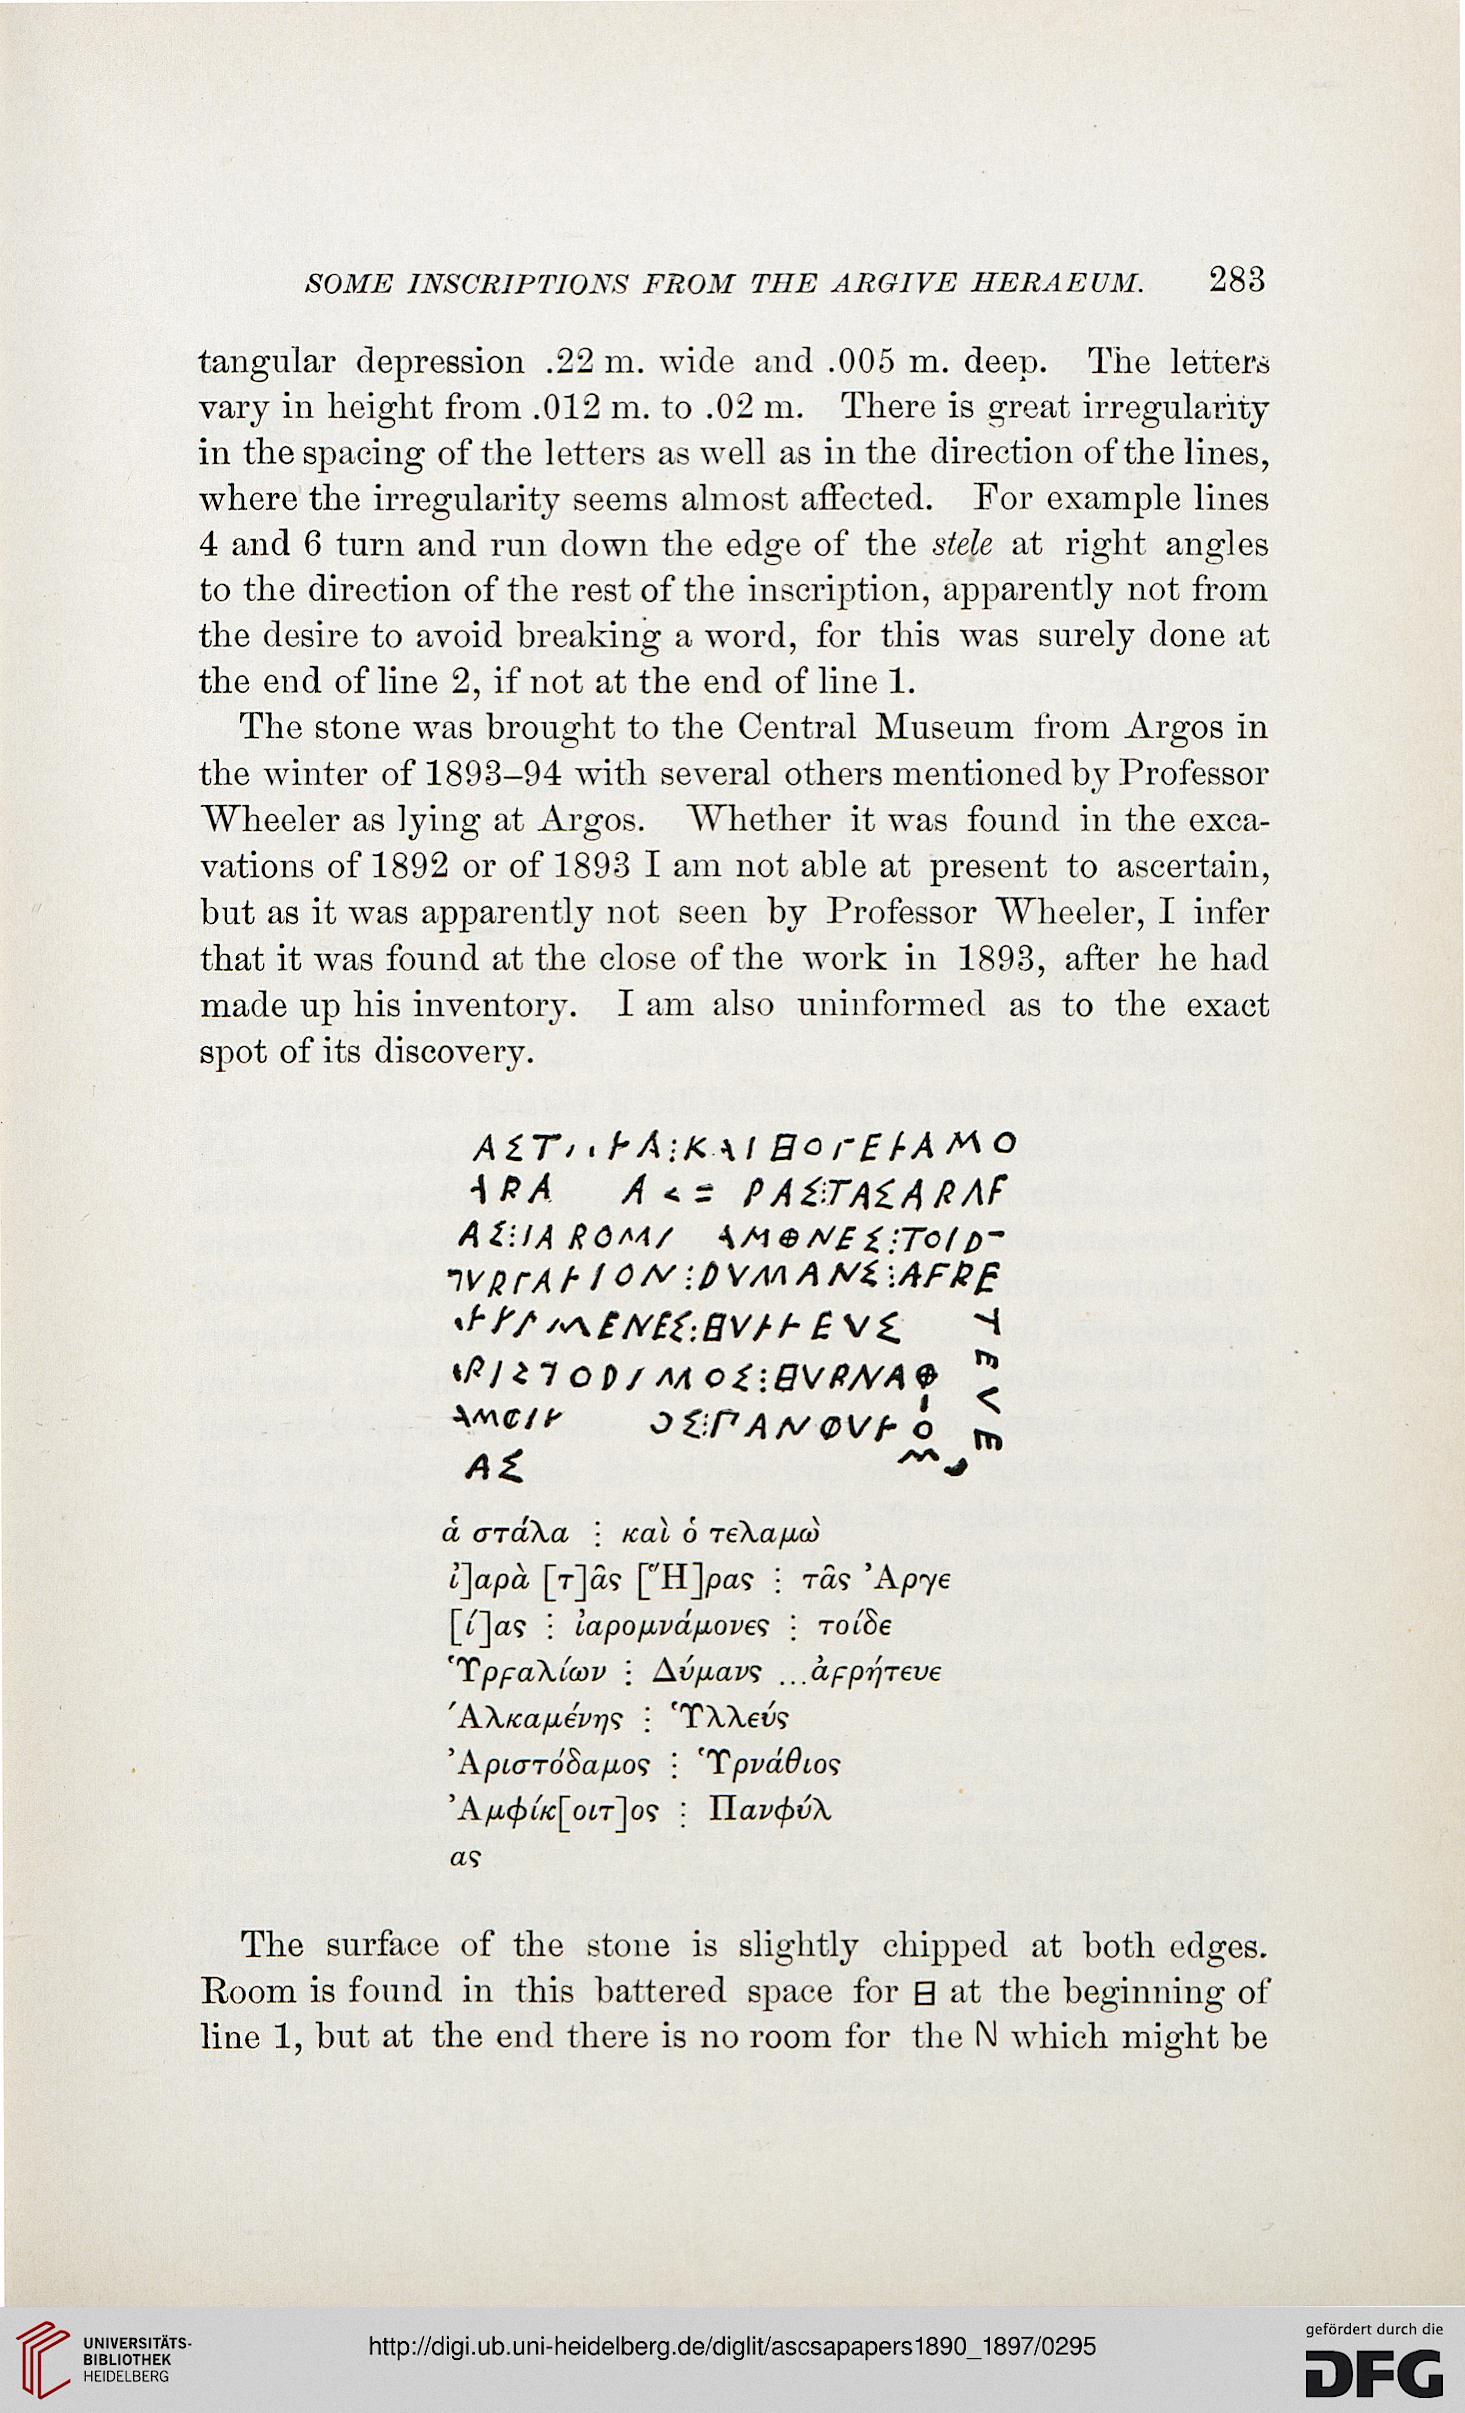 SOME INSCRIPTIONS FROM THE ARGIVE HERAEUM. 283
tangular depression .22 m. wide and .005 m. deep. The letters
vary in height from .012 m. to .02 m. There is great irregularity
in the spacing of the letters as well as in the direction of the lines,
where the irregularity seems almost affected. For example lines
4 and 6 turn and run down the edge of the stele at right angles
to the direction of the rest of the inscription, apparently not from
the desire to avoid breaking a word, for this was surely done at
the end of line 2, if not at the end of line 1.
The stone was brought to the Central Museum from Argos in
the winter of 1893–94 with several others mentioned by Professor
Wheeler as lying at Argos. Whether it was found in the exca-
vations of 1892 or of 1893 I am not able at present to ascertain,
but as it was apparently not seen by Professor Wheeler, I infer
that it was found at the close of the work in 1893, after he had
made up his inventory. I am also uninformed as to the exact
spot of its discovery.
ΑΣ
ἁ στάλα ⋮ καὶ ὁ τελαμὼ
ἰ]αρὰ [τ]ᾶς [Ἥ]ρας ⋮ τᾶς Ἀργε
[ί]ας ⋮ ἰαρομνάμονες ⋮ τοίδε
Ὑρϝαλίων ⋮ Δύμανς ...ἀϝρήτευε
Ἀλκαμένης ⋮ Ὑλλεύς
Ἀριστόδαμος ⋮ Ὑρνάθιος
Ἀμφίκ[οιτ]ος ⋮ Πανφύλ
ας
The surface of the stone is slightly chipped at both edges.
Room is found in this battered space for 日 at the beginning of
line 1, but at the end there is no room for the N which might be
UNIVERSITÄTS-
BIBLIOTHEK
HEIDELBERG
http://digi.ub.uni-heidelberg.de/diglit/ascsapapers1890_1897/0295
gefördert durch die
DFG